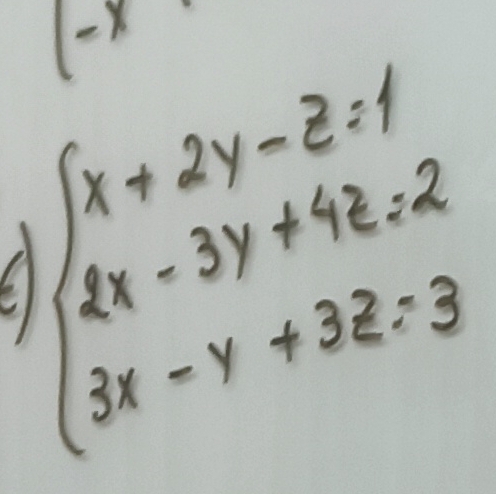 -x
c) x + 2y - z = 1
2x - 3y + 4z = 2
3x - y + 3z = 3